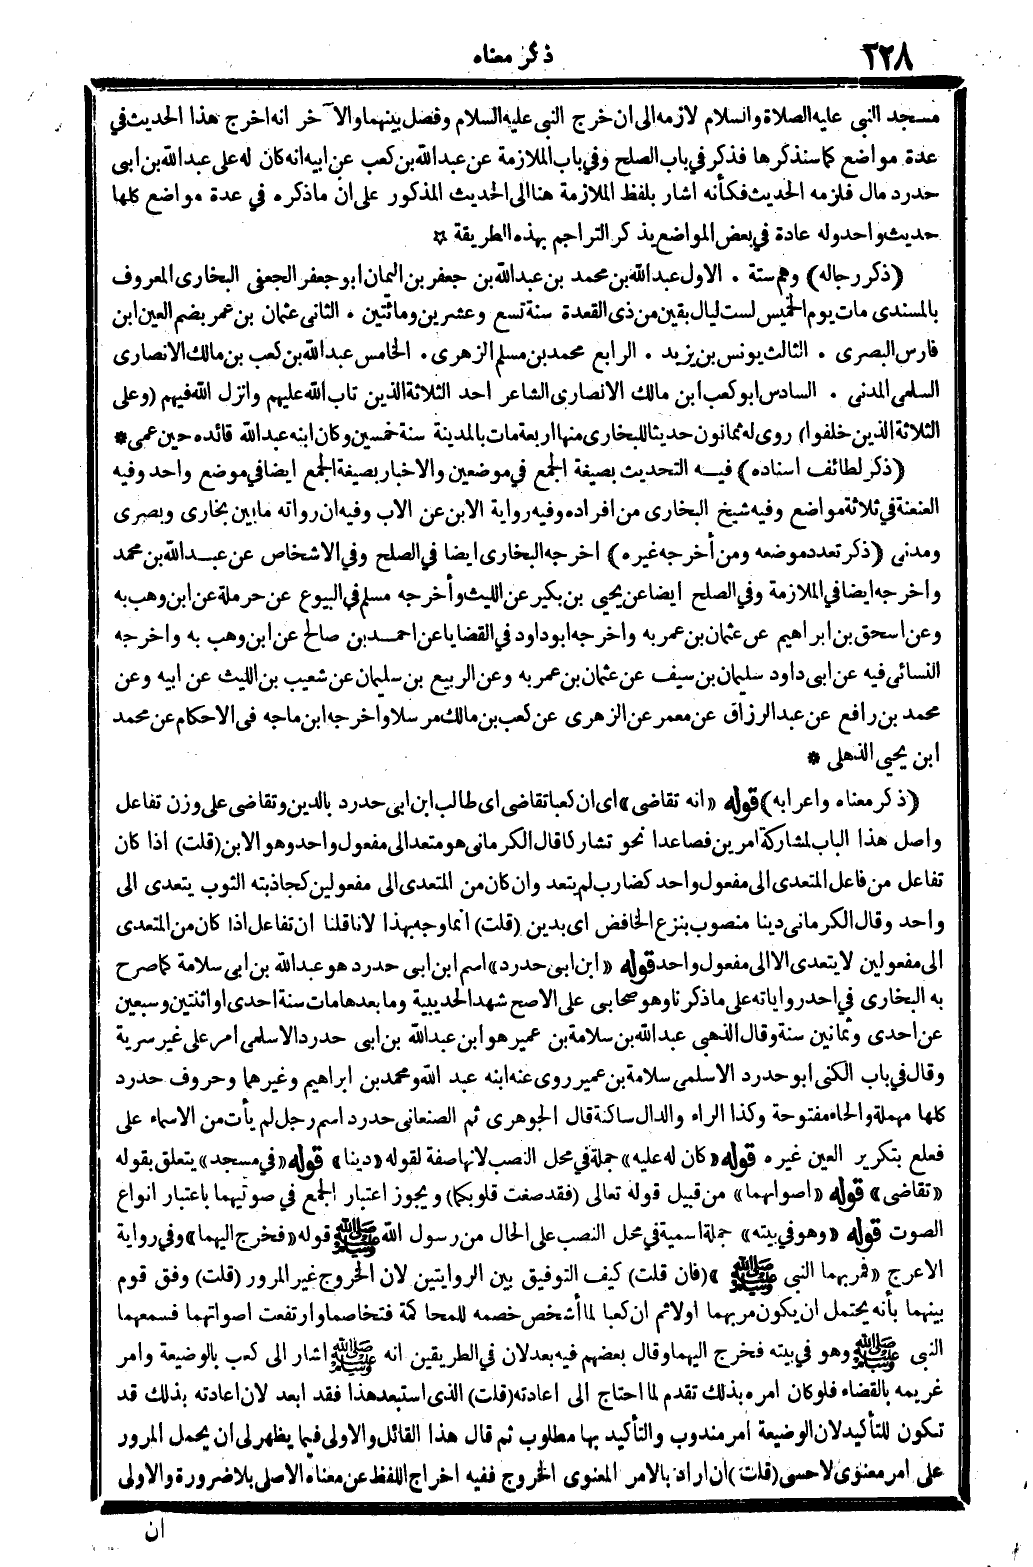 ٢٢٨
ذكر معناه
مسجد النبي عليه الصلاة والسلام لازمه الى ان خرج النبي عليه السلام وفصل بينهما والآخر انه اخرج هذا الحديث في
عدة مواضع كما سنذكرها فذكر في باب الصلح وفي باب الملازمة عن عبدالله بن كعب عن ابيه انه كان له على عبدالله بن ابى
حدرد مال فلزمه الحديث فكأنه اشار بلفظ الملازمة هنا الى الحديث المذكور على ان ماذكره في عدة مواضع كلها
حديث واحد وله عادة في بعض المواضع يذكر التراجم بهذه الطريقة *
(ذكر رجاله) وهم ستة . الاول عبدالله بن محمد بن عبدالله بن جعفر بن اليمان ابو جعفر الجعفي البخارى المعروف
بالمسندى مات يوم الخميس لست ليال بقين من ذى القعدة سنة تسع وعشرين ومائتين . الثانى عثمان بن عمر بضم العين ابن
فارس البصرى . الثالث يونس بن يزيد . الرابع محمد بن مسلم الزهرى . الخامس عبدالله بن كعب بن مالك الانصارى
السلمى المدنى . السادس ابو كعب ابن مالك الانصارى الشاعر احد الثلاثة الذين تاب الله عليهم وانزل الله فيهم (وعلى
الثلاثة الذين خلفوا) روى له ثمانون حديثا للبخارى منها اربعة مات بالمدينة سنة خمسين وكان ابنه عبدالله قائده حين عمى *
(ذكر لطائف اسناده) فيه التحديث بصيغة الجمع في موضعين والاخبار بصيغة الجمع ايضا في موضع واحد وفيه
العنعنة في ثلاثة مواضع وفيه شيخ البخارى من افراده وفيه رواية الابن عن الاب وفيه ان رواته ما بين بخارى وبصرى
ومدنى (ذكر تعدد موضعه ومن أخرجه غيره) اخرجه البخارى ايضا في الصلح وفي الاشخاص عن عبدالله بن محمد
واخرجه ايضا في الملازمة وفي الصلح ايضا عن يحيى بن بكير عن الليث وأخرجه مسلم في البيوع عن حرملة عن ابن وهب به
وعن اسحق بن ابراهيم عن عثمان بن عمر به واخرجه ابو داود في القضايا عن احمد بن صالح عن ابن وهب به واخرجه
النسائى فيه عن ابى داود سليمان بن سيف عن عثمان بن عمر به وعن الربيع بن سليمان عن شعيب بن الليث عن ابيه وعن
محمد بن رافع عن عبد الرزاق عن معمر عن الزهرى عن كعب بن مالك مرسلا واخرجه ابن ماجه في الاحكام عن محمد
ابن يحيى الذهلى *
(ذكر معناه واعرابه) قوله «انه تقاضى» اى ان كعبا تقاضى اى طالب ابن ابى حدرد بالدين وتقاضى على وزن تفاعل
واصل هذا الباب لمشاركة امرين فصاعدا نحو تشاركا قال الكرمانى هو متعد الى مفعول واحد وهو الابن (قلت) اذا كان
تفاعل من فاعل المتعدى الى مفعول واحد كضارب لم يتعد وان كان من المتعدى الى مفعولين كجاذبته الثوب يتعدى الى
واحد وقال الكرمانى دينا منصوب بنزع الخافض اى بدين (قلت) انما وجه بهذا لانا قلنا ان تفاعل اذا كان من المتعدى
الى مفعولين لا يتعدى الا الى مفعول واحد قوله «ابن ابى حدرد» اسم ابن ابى حدرد هو عبدالله بن ابى سلامة كما صرح
به البخارى في احد رواياته على ما ذكرنا وهو صحابى على الاصح شهد الحديبية وما بعدها مات سنة احدى او اثنتين وسبعين
عن احدى وثمانين سنة وقال الذهبى عبدالله بن سلامة بن عمير هو ابن عبدالله بن ابى حدرد الاسلمى امر على غير سرية
وقال في باب الكنى ابو حدرد الاسلمى سلامة بن عمير روى عنه ابنه عبد الله ومحمد بن ابراهيم وغيرهما وحروف حدرد
كلها مهملة والحاء مفتوحة وكذا الراء والدال ساكنة قال الجوهرى ثم الصنعانى حدرد اسم رجل لم يأت من الاسماء على
فعلع بتكرير العين غيره قوله «كان له عليه» جملة في محل النصب لانها صفة لقوله «دينا» قوله «في مسجد» يتعلق بقوله
«تقاضى» قوله «اصواتهما» من قبيل قوله تعالى (فقد صغت قلوبكما) ويجوز اعتبار الجمع في صوتيهما باعتبار انواع
الصوت قوله «وهو في بيته» جملة اسمية في محل النصب على الحال من رسول الله ﷺ قوله «فخرج اليهما» وفي رواية
الاعرج «فمر بهما النبى ﷺ» (فان قلت) كيف التوفيق بين الروايتين لان الخروج غير المرور (قلت) وفق قوم
بينهما بأنه يحتمل ان يكون مر بهما اولا ثم ان كعبا لما أشخص خصمه للمحاكمة فتخاصما وارتفعت اصواتهما فسمعهما
النبى ﷺ وهو في بيته فخرج اليهما وقال بعضهم فيه بعد لان في الطريقين انه ﷺ اشار الى كعب بالوضيعة وامر
غريمه بالقضاء فلو كان امره بذلك تقدم لما احتاج الى اعادته (قلت) الذى استبعد هذا فقد ابعد لان اعادته بذلك قد
تكون للتأكيد لان الوضيعة امر مندوب والتأكيد بها مطلوب ثم قال هذا القائل والاولى فيما يظهر لى ان يحمل المرور
على امر معنوى لا حسى (قلت) ان اراد بالامر المعنوى الخروج ففيه اخراج اللفظ عن معناه الاصلى بلا ضرورة والاولى
ان